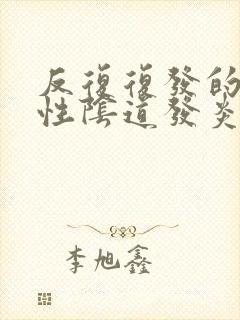 反復復發的
性陰道發炎
李旭鑫